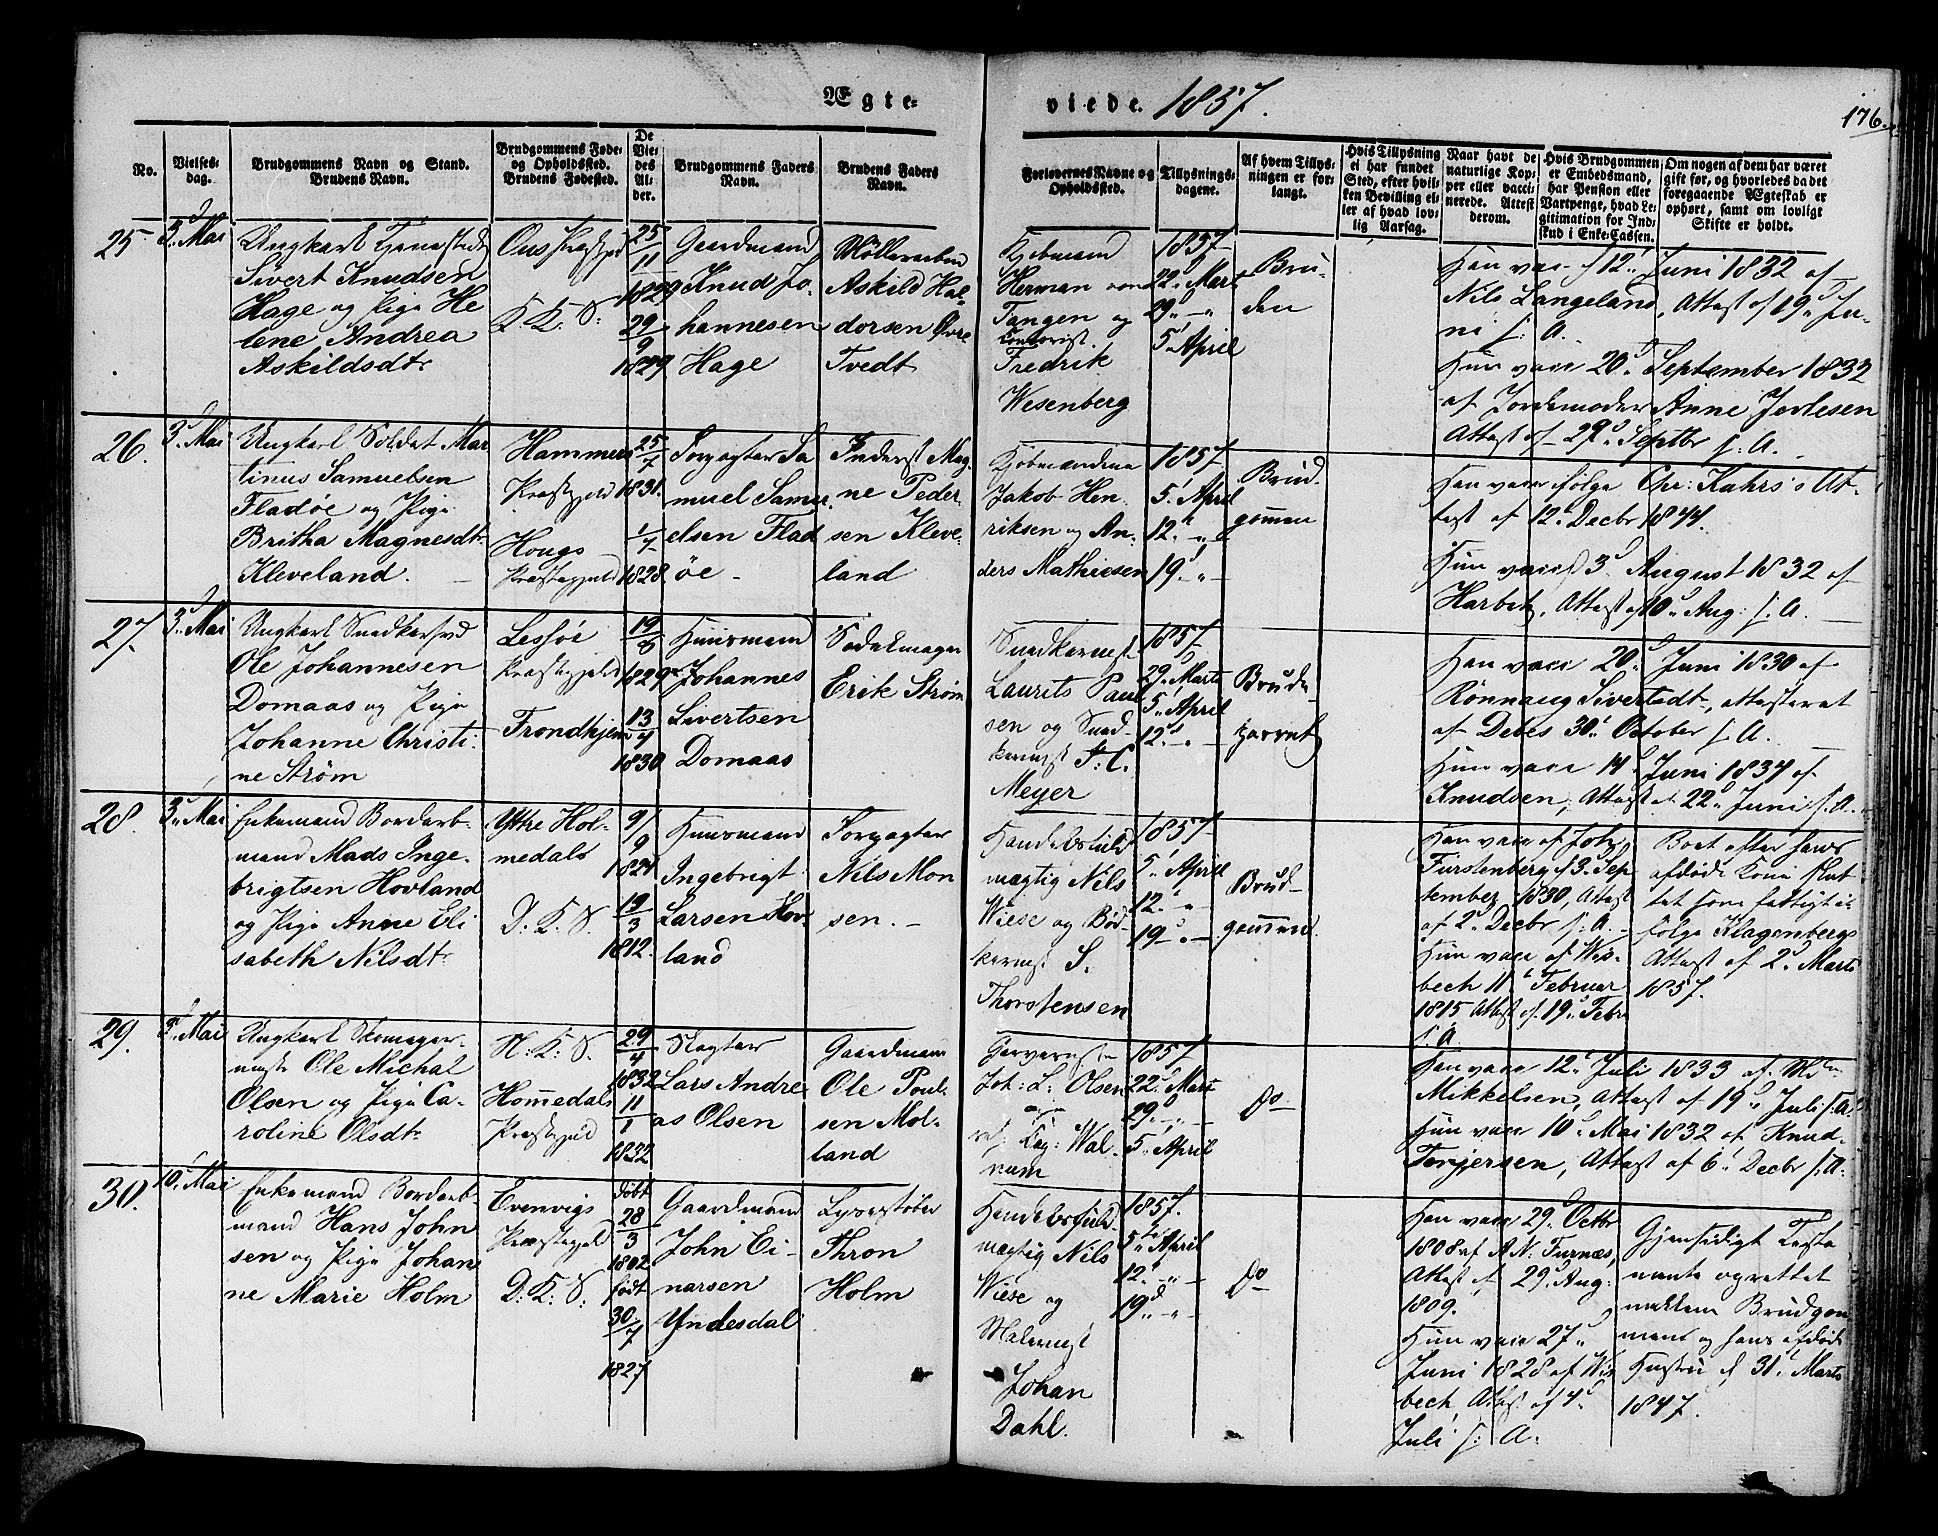 Ægte=
viede. 1857.
176.
No.
Vielses-
dag.
Brudgommens Navn og Stand.
Brudens Navn.
Brudgommens Føde-
og Opholdssted.
Brudens Fødested.
De
Vie-
des
Al-
der.
Brudgommens Faders
Navn.
Brudens Faders
Navn.
Forlovernes Navne og
Opholdssted.
Tillysnings-
dagene.
Af hvem Tillys-
ningen er for-
langt.
Hvis Tillysning
ei har fundet
Sted, efter hvil-
ken Bevilling el-
ler af hvad lov-
lig Aarsag.
Naar havt de
naturlige Kop-
per eller vacci-
nerede. Attest
derom.
Hvis Brudgommen
er Embedsmand,
har Pension eller
Vartpenge, hvad Le-
gitimation for Ind-
skud i Enke-Cassen.
Om nogen af dem har været
gift før, og hvorledes da det
foregaaende Ægteskab er
ophørt, samt om lovligt
Skifte er holdt.
25
3. Mai
Ungkarl
Sivert Knudsen
Hage og Pige He
lene Andrea
Askildsdtr
Ous Præstegjeld
K. K: S:
25
11
1829
29
9
1829
Gaardmand
Knud Jo-
hannesen
Hage
Askild Hal-
dorsen Øvre
Tvedt
Kjøbmand
Herman von
Tangen og
Fredrik
Wesenberg
1857
22. Marts
29. "
5. April
Bru-
den
Han vacc. 12. Juni 1832 af
Nils Langeland, Attest af 19. Ju-
ni s: A.
Hun vacc 20. September 1832
af Jordemoder Anne Jerlesen
Attest af 29. Septbr s: A.
26.
3. Mai
Ungkarl Soldat Mar
tinus Samuelsen
Fladøe og Pige
Britha Magnesdtr
Kleveland.
Hammers
Præstegjeld
Hougs
Præstegjeld
25
7
1831.
1
7
1828.
Forpagter Sa
muel Samu-
elsen Flad
øe -
Inderst Mag-
ne Peder-
sen Kleve-
land
Kjøbmændene
Jakob Hen-
riksen og An-
ders Mathiesen
1857
5. April
12. "
19. " -
Brud-
gommen
Han vacc ifølge Chr: Kahrs's At-
test af 12. Decbr 1844.
Hun vacc 3. August 1832 af
Harbitz, Attest af 10. Aug: s: A.
27.
3. Mai
Ungkarl Snedkersvd
Ole Johannesen
Domaas og Pige
Johanne Christi-
ne Strøm
Lessøe
Præstegjeld
Trondhjem
19
8
1829
13
4
1830
Huusmand
Johannes
Sivertsen
Domaas
Sadelmager
Erik Strøm
Snedkermst
Laurits Paul
sen og Sned-
kermst F: C.
Meyer
1857
29. Marts
5. April
12. " -
Brude-
parret
Han vacc 20. Juni 1830 af
Rönnaug Sivertsdt, attesteret
af Debes 30. October s: A.
Hun vacc 14. Juni 1834 af
Knudsen, Attest af 22. Juni s: A.
28.
3. Mai
Enkemand Bordarb-
mand Mads Inge-
brigtsen Hovland
og Pige Anne Eli
sabeth Nilsdtr
Yttre Hol-
medals
D. K. S.
9/
9
1824
19
3
1812.
Huusmand
Ingebrigt
Larsen Hov-
land
Forpagter
Nils Mon
sen. -
Handelsfuld-
mægtig Nils
Wiese og Bød-
kermst S.
Thorstensen
1857
5. April
12. " -
19. " -
Brud-
gommen.
Han vacc af Joh:
Furstenberg 3. Sep-
tember 1830, Attest
af 2. Decbr s: A. -
Hun vacc af Wis-
bech 11. Februar
1815 Attest af 19. Febr
s: A.
Boet efter hans
afdøde Kone slut
tet som fattigt i-
følge Klagenbergs
Attest af 2. Marts
1857.
29.
3. Mai
Ungkarl Skomager-
mstr Ole Michal
Olsen og Pige Ca-
roline Olsdtr
N: K: S.
Homedals
Præstegjeld
29
4
1832
11
1
1832
Slagter
Lars Andre
as Olsen
Gaardmand
Ole Poul-
sen Mol-
land
Garvermstr
Joh: L: Olsen
og
Wal-
num
1857
22. Marts
29. " -
5. April
Do -
Han vacc 12. Juli 1833 af
Mikkelsen, Attest af 19. Juli s: A:
Hun vacc 10. Mai 1832 af Knud
Terjersen, Attest af 6. Decbr s: A:
30.
10. Mai
Enkemand Bordarb-
mand Hans John
sen og Pige Johan
ne Marie Holm
Evenvigs
Præstegjeld
D: K: S:
døbt
28
3
1802
født
30
7
1827
Gaardmand
John Ei-
narsen
Yndesdal
Lysestøber
Thron
Holm
Handelsfuld-
mægtig Nils
Wiese og
Malermst
Johan
Dahl.
1857.
5. April
12. " -
19. " -
Do -
Han vacc 29. Octbr
1808 af A. N: Turnæs,
Attest af 29. Aug:
1809.
Hun vacc 27.
Juni 1828 af Wis
bech, Attest af 4.
Juli s: A:
Gjensidigt Testa
mente oprettet
mellem Brudgom
men og hans afdøde
Hustru d. 31. Marts
1847.